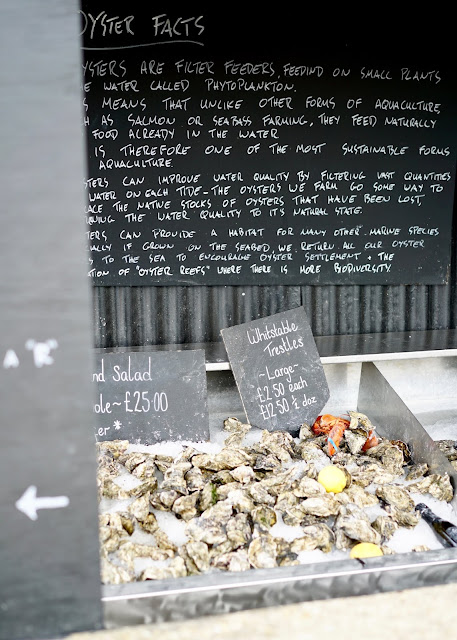 OYSTER FACTS
OYSTERS ARE FILTER FEEDERS, FEEDIND ON SMALL PLANTS
WATER CALLED PHYTOPLANKTON.
MEANS THAT UNLIKE OTHER FORMS OF AQUACULTURE,
AS SALMON OR SEABASS FARMING, THEY FEED NATURALLY
FOOD ALREADY IN THE WATER
IS THEREFORE ONE OF THE MOST SUSTAINABLE FORMS
AQUACULTURE.
CAN IMPROVE WATER QUALITY BY FILTERING VAST QUANTITIES
WATER ON EACH TIDE - THE OYSTERS WE FARM GO SOME WAY TO
THE NATIVE STOCKS OF OYSTERS THAT HAVE BEEN LOST,
THE WATER QUALITY TO IT'S NATURAL STATE.
CAN PROVIDE A HABITAT FOR MANY OTHER MARINE SPECIES
IF GROWN ON THE SEABED, WE RETURN ALL OUR OYSTER
TO THE SEA TO ENCOURAGE OYSTER SETTLEMENT + THE
OF "OYSTER REEFS" WHERE THERE IS MORE BIODIVERSITY.
Whitstable
Trestles
~Large~
£2.50 each
£12.50 ½ doz
Salad
~£25.00
*
A "R"
←